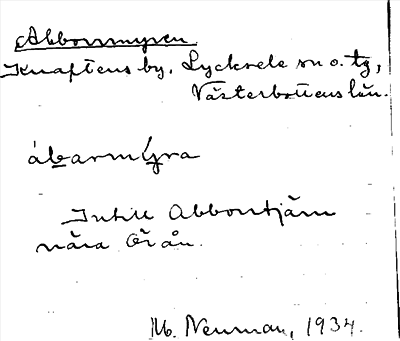 Abborrmyren
Knaftens by, Lycksele sn o. tg,
Västerbottens län.
ábarmy̆ra
Intill Abborrtjärn
nära Örån.
M. Neuman, 1934.